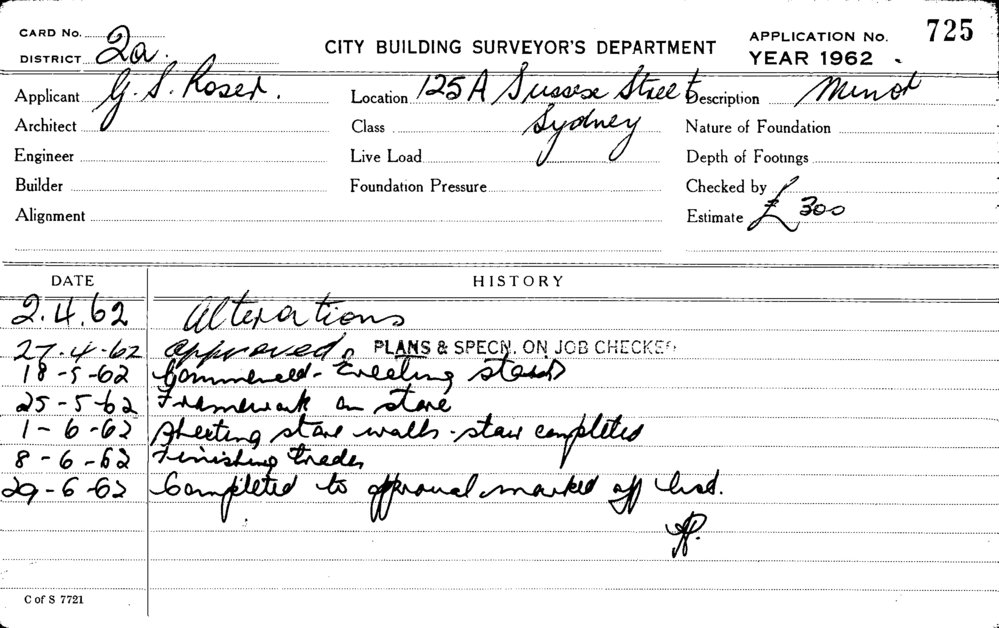 CARD No.
DISTRICT 2a.
CITY BUILDING SURVEYOR'S DEPARTMENT
APPLICATION No. 725
YEAR 1962
Applicant G. S. Roser.
Location 125A Sussex Street
Description Minor
Architect
Class Sydney
Nature of Foundation
Engineer
Live Load
Depth of Footings
Builder
Foundation Pressure
Checked by
Alignment
Estimate £ 300
DATE HISTORY
2.4.62 Alterations
27.4.62 approved. PLANS & SPECN. ON JOB CHECKED
18-5-62 Commenced - Erecting
25-5-62 Framework on store
1-6-62 Sheeting store walls - stair completed
8-6-62 Finishing trades
29-6-62 Completed to approval marked off list.
C of S 7721